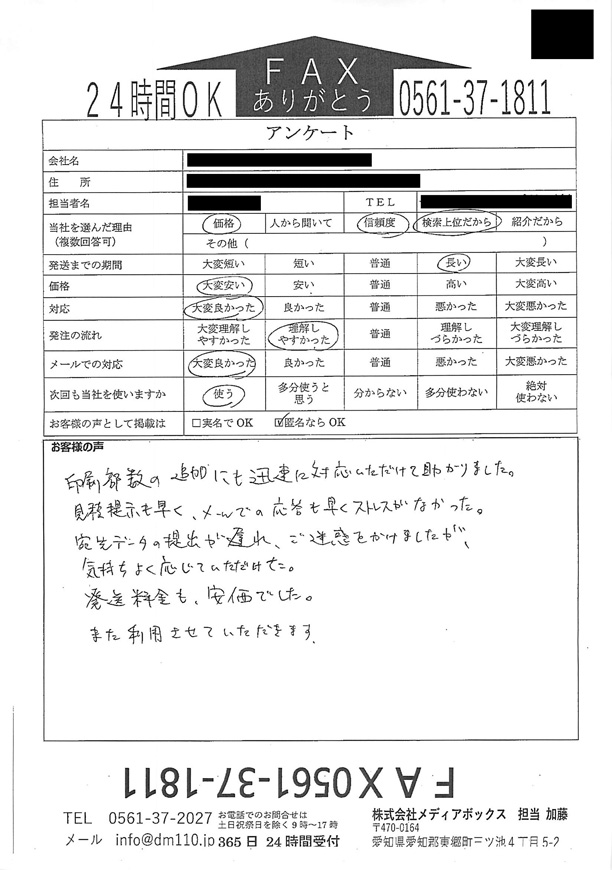 FAX
ありがとう
24時間OK
0561-37-1811
アンケート
会社名
住　所
担当者名 TEL
当社を選んだ理由
（複数回答可）
価格 人から聞いて 信頼度 検索上位だから 紹介だから
その他（ ）
発送までの期間 大変短い 短い 普通 長い 大変長い
価格 大変安い 安い 普通 高い 大変高い
対応 大変良かった 良かった 普通 悪かった 大変悪かった
発注の流れ 大変理解しやすかった 理解しやすかった 普通 理解しづらかった 大変理解しづらかった
メールでの対応 大変良かった 良かった 普通 悪かった 大変悪かった
次回も当社を使いますか 使う 多分使うと思う 分からない 多分使わない 絶対使わない
お客様の声として掲載は □実名でOK ☑匿名ならOK
お客様の声
印刷部数の追加にも迅速に対応いただけて助かりました。
見積提示も早く、メールでの応答も早くストレスがなかった。
宛先データの提出が遅れ、ご迷惑をかけましたが、
気持ちよく応じていただけた。
発送料金も、安価でした。
また利用させていただきます。
FAX0561-37-1811
TEL 0561-37-2027 お電話でのお問合せは
土日祝祭日を除く9時～17時
メール info@dm110.jp 365日 24時間受付
株式会社メディアボックス 担当 加藤
〒470-0164
愛知県愛知郡東郷町三ツ池4丁目5-2